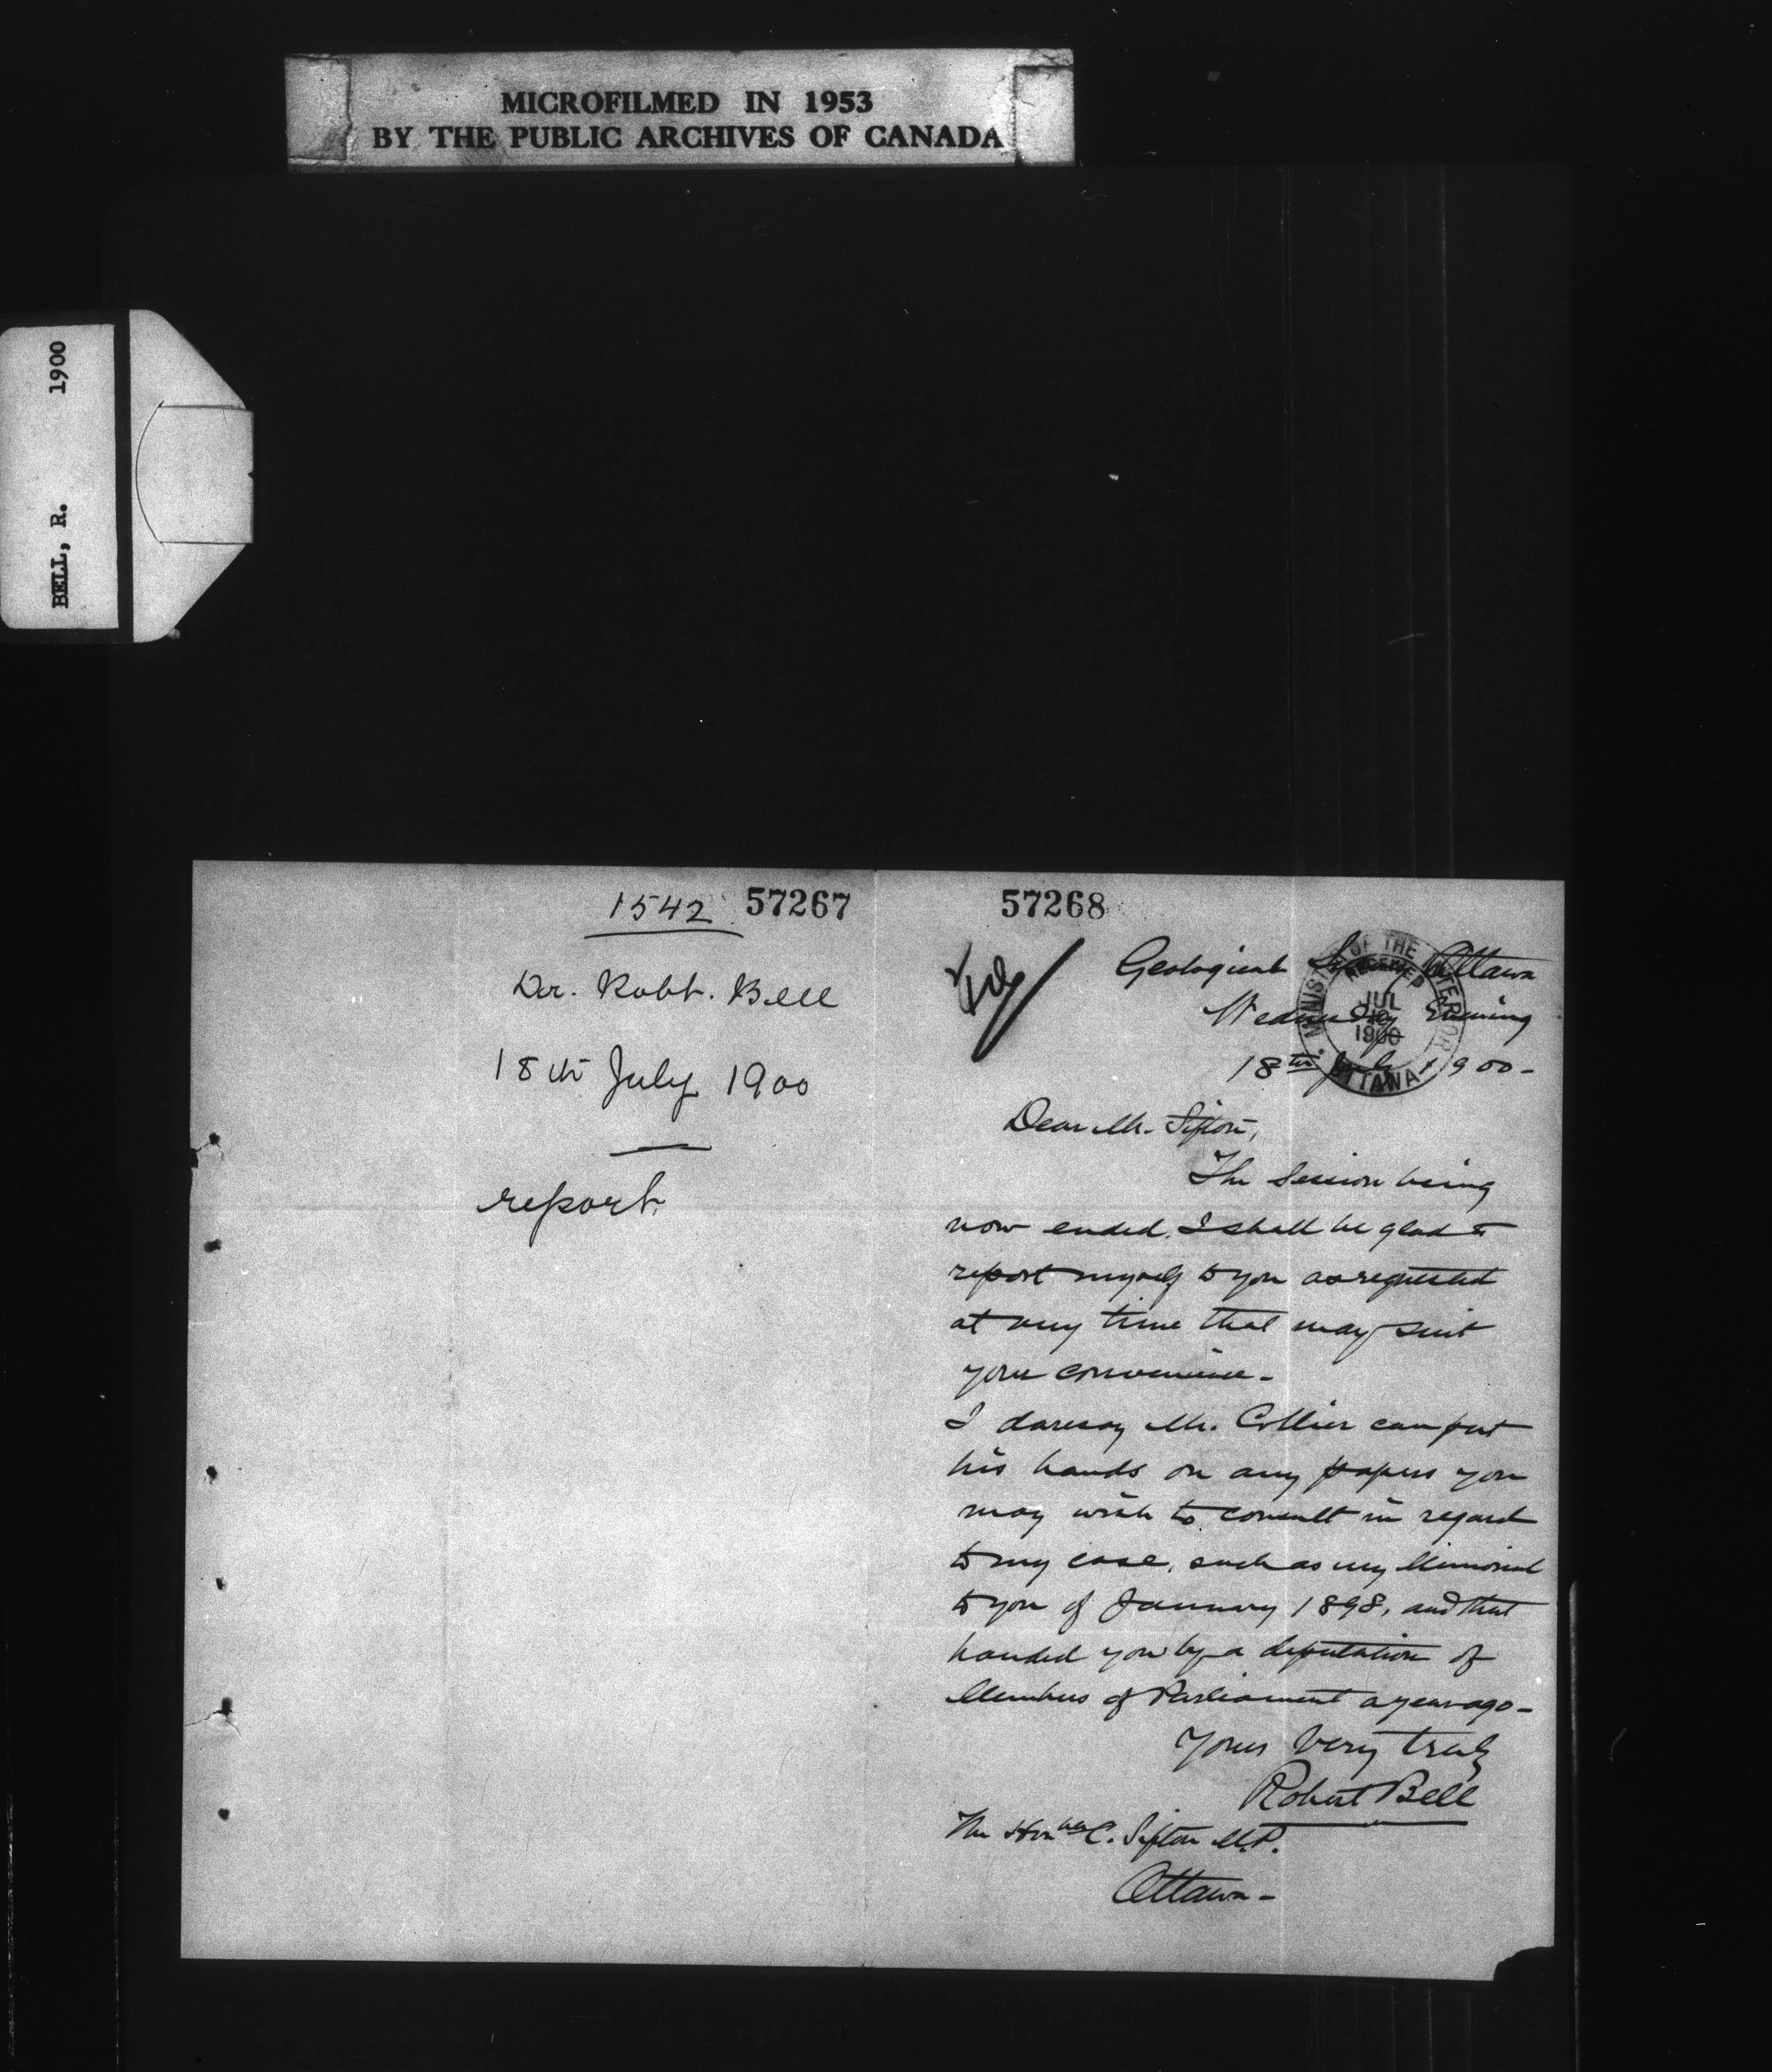 MICROFILMED IN 1953
BY THE PUBLIC ARCHIVES OF CANADA
BELL, R. 1900
1542 57267
Dr. Robt. Bell
18th July 1900
report.
57268
Geological Ottawa
Wednesday Evening
18th July 1900-
MINISTER OF THE INTERIOR
RECEIVED
JUL
19
1900
OTTAWA
Dear Mr. Sifton,
The Session being
now ended, I shall be glad to
report myself to you as requested
at any time that may suit
your convenience-
I daresay Mr. Collier can put
his hands on any papers you
may wish to consult in regard
to my case, such as my Memorial
to you of January 1898, and that
handed you by a deputation of
Members of Parliament a year ago-
Yours very truly
Robert Bell
The Honble C. Sifton M.P.
Ottawa-